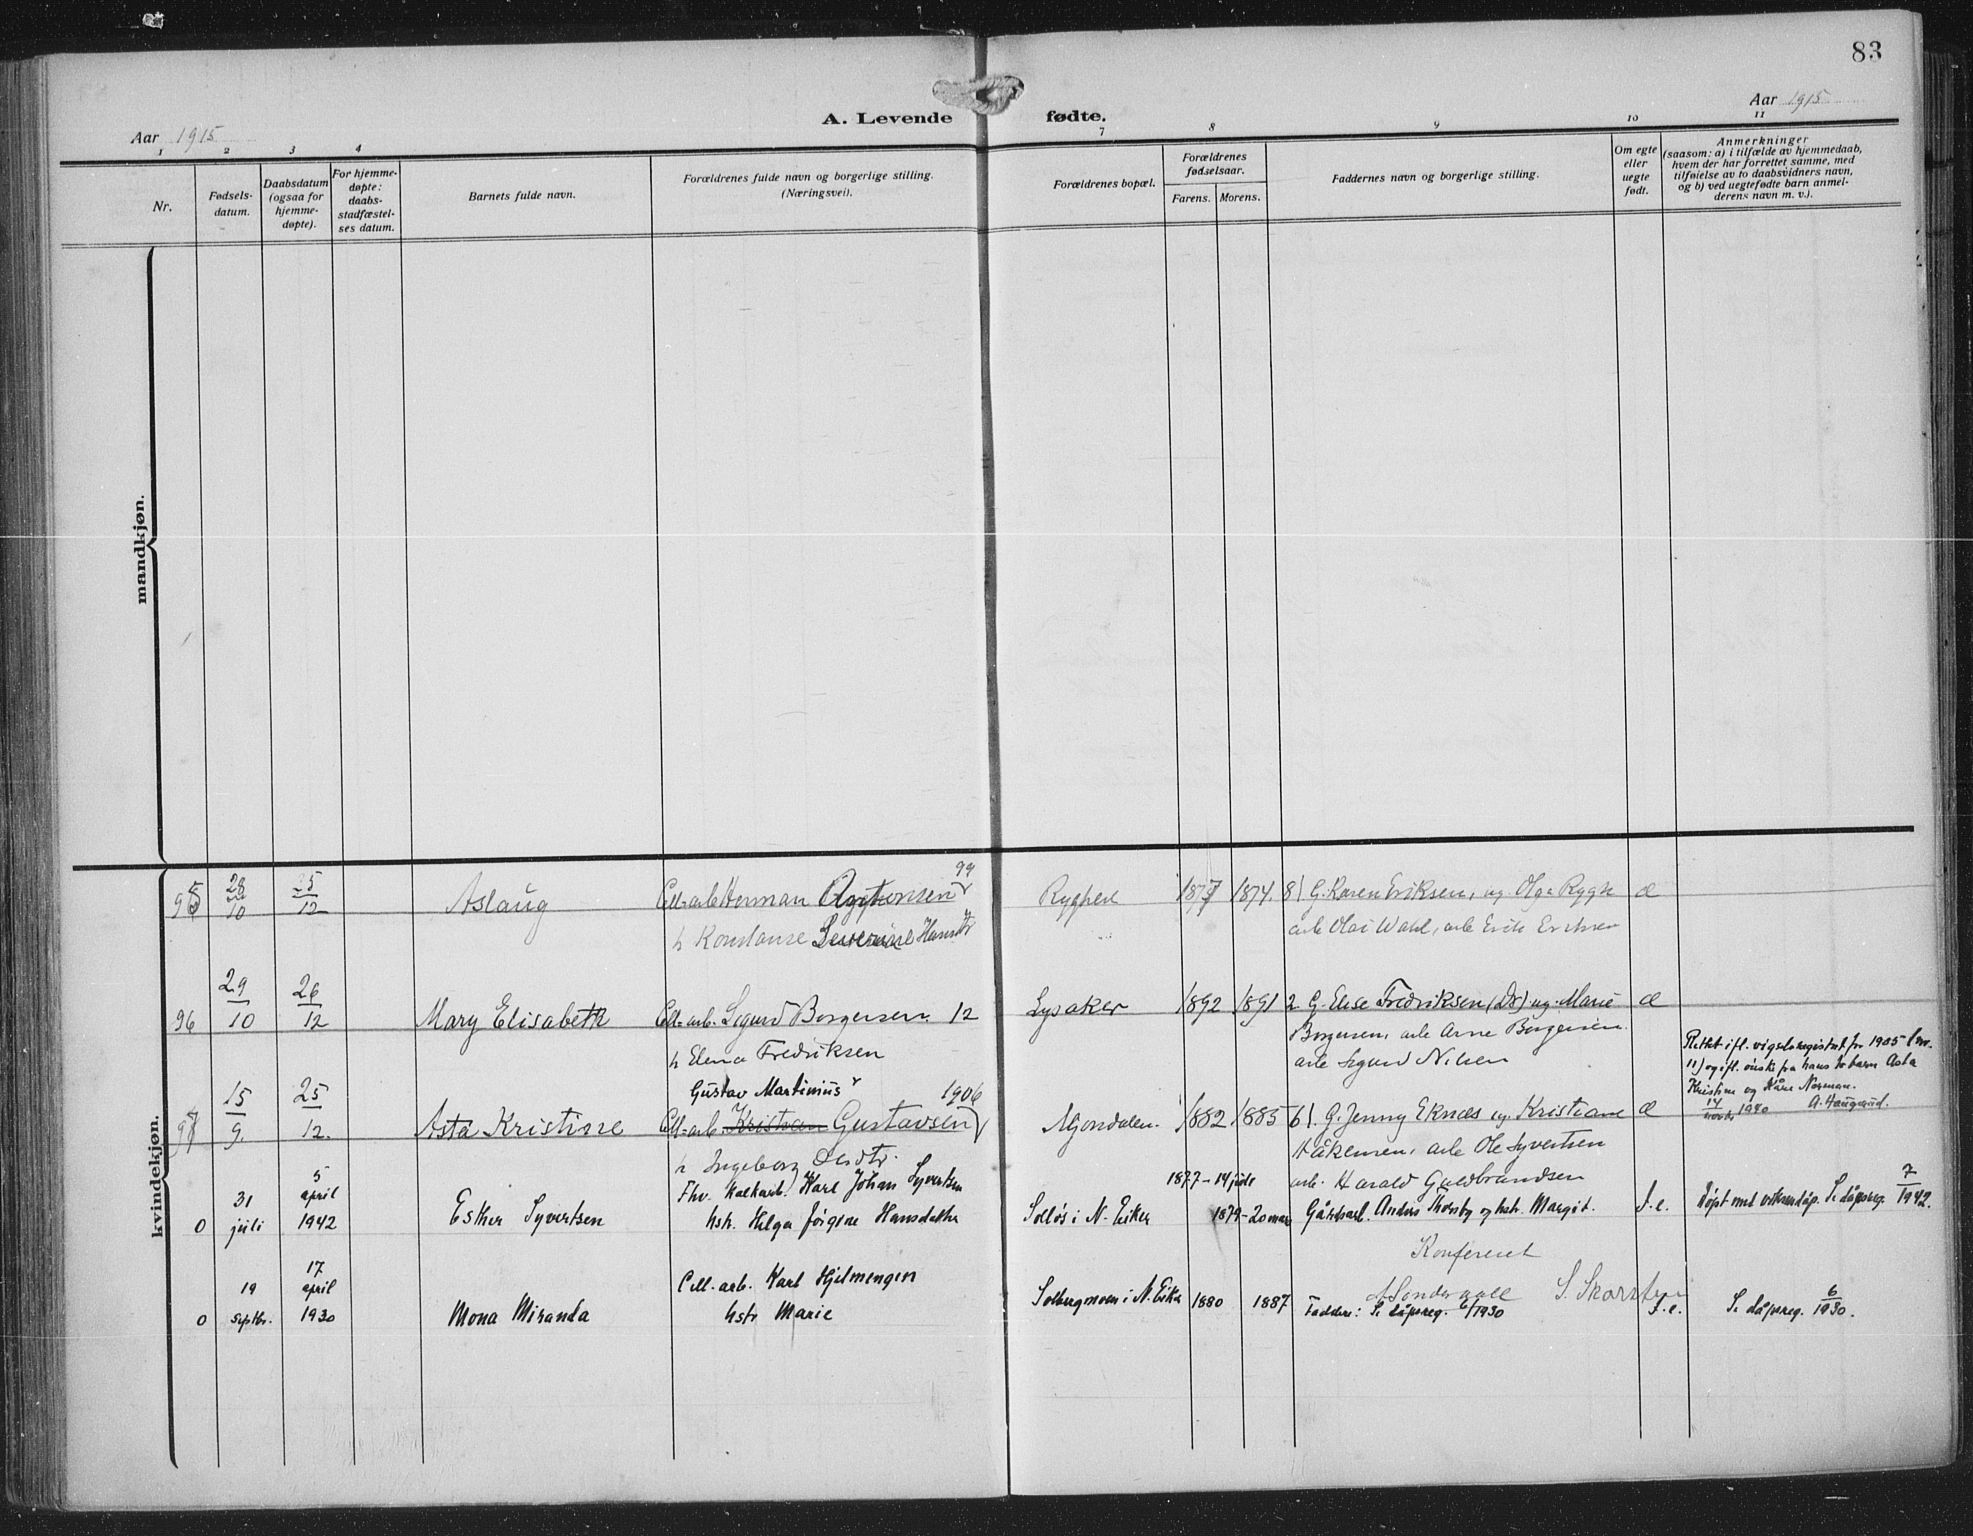 83
A. Levende fødte.
Aar 1915
Aar 1915
1 2 3 4 7 8 9 10 11
Nr.
Fødsels-
datum.
Daabsdatum
(ogsaa for
hjemme-
døpte).
For hjemme-
døpte:
daabs-
stadfæstel-
ses datum.
Barnets fulde navn.
Forældrenes fulde navn og borgerlige stilling.
(Næringsvei).
Forældrenes bopæl.
Forældrenes
fødselsaar.
Farens. Morens.
Faddernes navn og borgerlige stilling.
Om egte
eller
uegte
født.
Anmerkninger
(saasom: a) i tilfælde av hjemmedaab,
hvem der har forrettet samme, med
tilføielse av to daabsvidners navn,
og b) ved uegtefødte barn anmel-
derens navn m. v.).
mandkjøn.
kvindekjøn.
95 28/10 25/12 Aslaug Cell-arb Herman Anthonsen 99 Ryghset 1874. 8) G. Karen Eriksen, ug. Olga Rygh æ
h Konstanse Severine Hansdtr arb Olai Wahl, arb Erik Eriksen
96 29/10 26/12 Mary Elisabeth Cell-arb. Sigurd Borgersen. 12 Lysaker 1892 1891 2 G. Elise Fredriksen (Dr) ug. Marie æ
h Elena Fredriksen Borgersen, arb Arne Borgersen
arb Sigurd Nilsen
Rettet ifl. vigselsregistret for 1905 (nr.
11) og ifl. ønske fra hans to barn Asta
Kristine og Kåre Norman.
14/novbr 1940 A. Haugerud.
Gustav Martinius 1906
97 15/9. 25/12. Asta Kristine Cell-arb. Kristian Gustavsen Mjøndalen. 1882 1885 6). G. Jenny Eknæs ug. Kristiane æ
h Ingeborg Olsdtr. Håkensen, arb Ole Syvertsen
arb. Harald Guldbrandsen
0 31 juli 5 april 1942 Esther Syvertsen Fhv. kalkarb. Karl Johan Syvertsen
hstr. Helga Jørgine Hansdatter Solløs i N. Eiker 1877-14 jule 1879-20 mars Gårdbarb. Anders Thorsby og hstr. Margit. I.e. Døpt med voksendåp. Se dåpsreg. 7/1942.
Konfereret
0 19 septbr. 17 april 1930 Mona Miranda Cell-arb. Karl Hjelmengen
hstr Marie Solbergmoen i N. Eiker 1880 1887 Faddere: Se dåpsreg. 6/1930 I.e. Se dåpsreg. 6/1930.